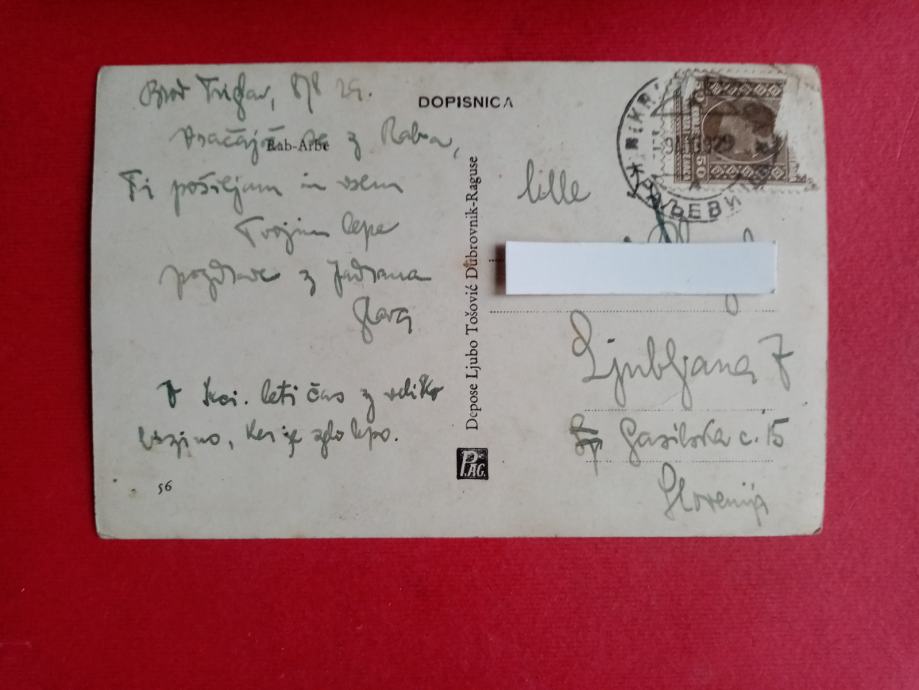 Brod Triglav, 8/8 29.
DOPISNICA
Vračajoč se z Raba,
Rab-Arbe
Ti pošiljam in vsem
Tvojim lepe
pozdrave z Jadrana
Slava
V Kr. leti čas z veliko
brzino, ker je zelo lepo.
56
Depose Ljubo Tošović Dubrovnik-Raguse
PAG.
Ljubljana 7
Sp Gasilska c. 15
Slovenija